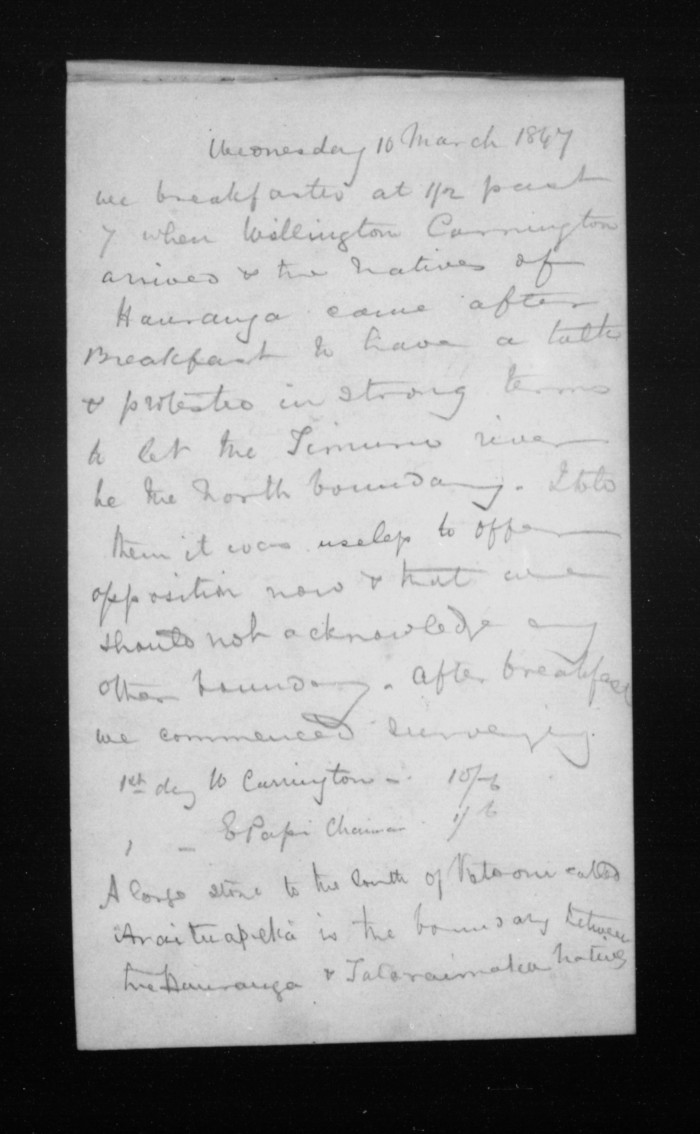 Wednesday 10 March 1847
we breakfasted at 1/2 past
7 when Wellington Carrington
arrived & the Natives of
Hauranga came after
Breakfast to have a talk
& protested in strong terms
to let the Timuru river
be the North boundary. I told
them it was useless to offer
opposition now & that we
should not acknowledge any
other boundary. After breakfast
we commenced surveying.
1st day W Carrington - 10/-
" - E Papi Chainman
A large stone to the South of called
Araituapeka is the boundary between
the Hauranga & Tataraimaka Natives